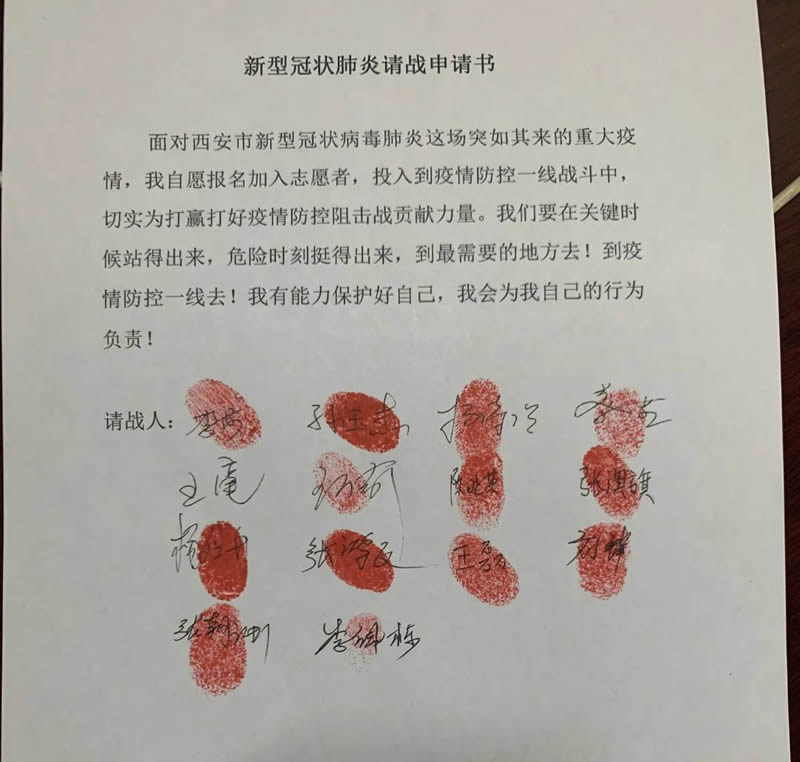 新型冠状肺炎请战申请书
面对西安市新型冠状病毒肺炎这场突如其来的重大疫
情，我自愿报名加入志愿者，投入到疫情防控一线战斗中，
切实为打赢打好疫情防控阻击战贡献力量。我们要在关键时
候站得出来，危险时刻挺得出来，到最需要的地方去！到疫
情防控一线去！我有能力保护好自己，我会为我自己的行为
负责！
请战人：
张淇旗
王磊